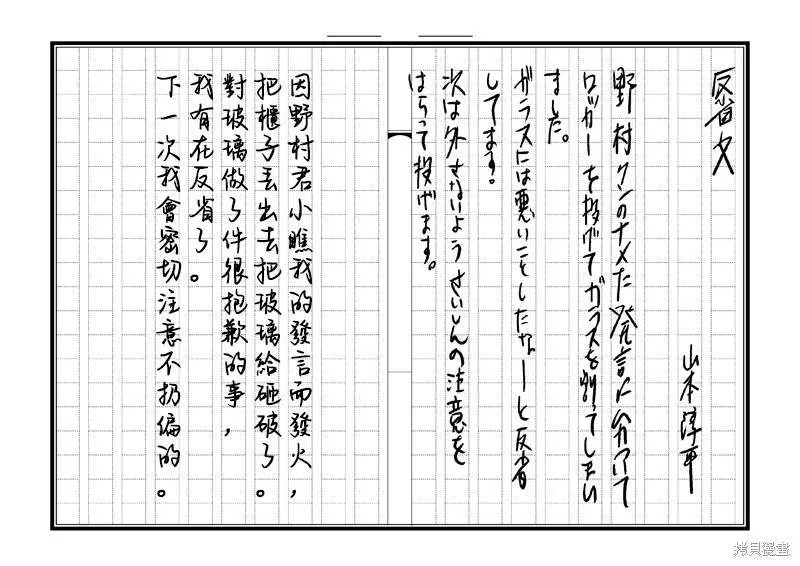 反省文
山本淳平
野村クンのナメた発言にムカついて
ロッカーを投げてガラスを割ってしまい
ました。
ガラスには悪いことしたなーと反省
してます。
次は外さないようさいしんの注意を
はらって投げます。
因野村君小瞧我的發言而發火，
把櫃子丟出去把玻璃給砸破了。
對玻璃做了件很抱歉的事，
我有在反省了。
下一次我會密切注意不扔偏的。
拷貝漫畫